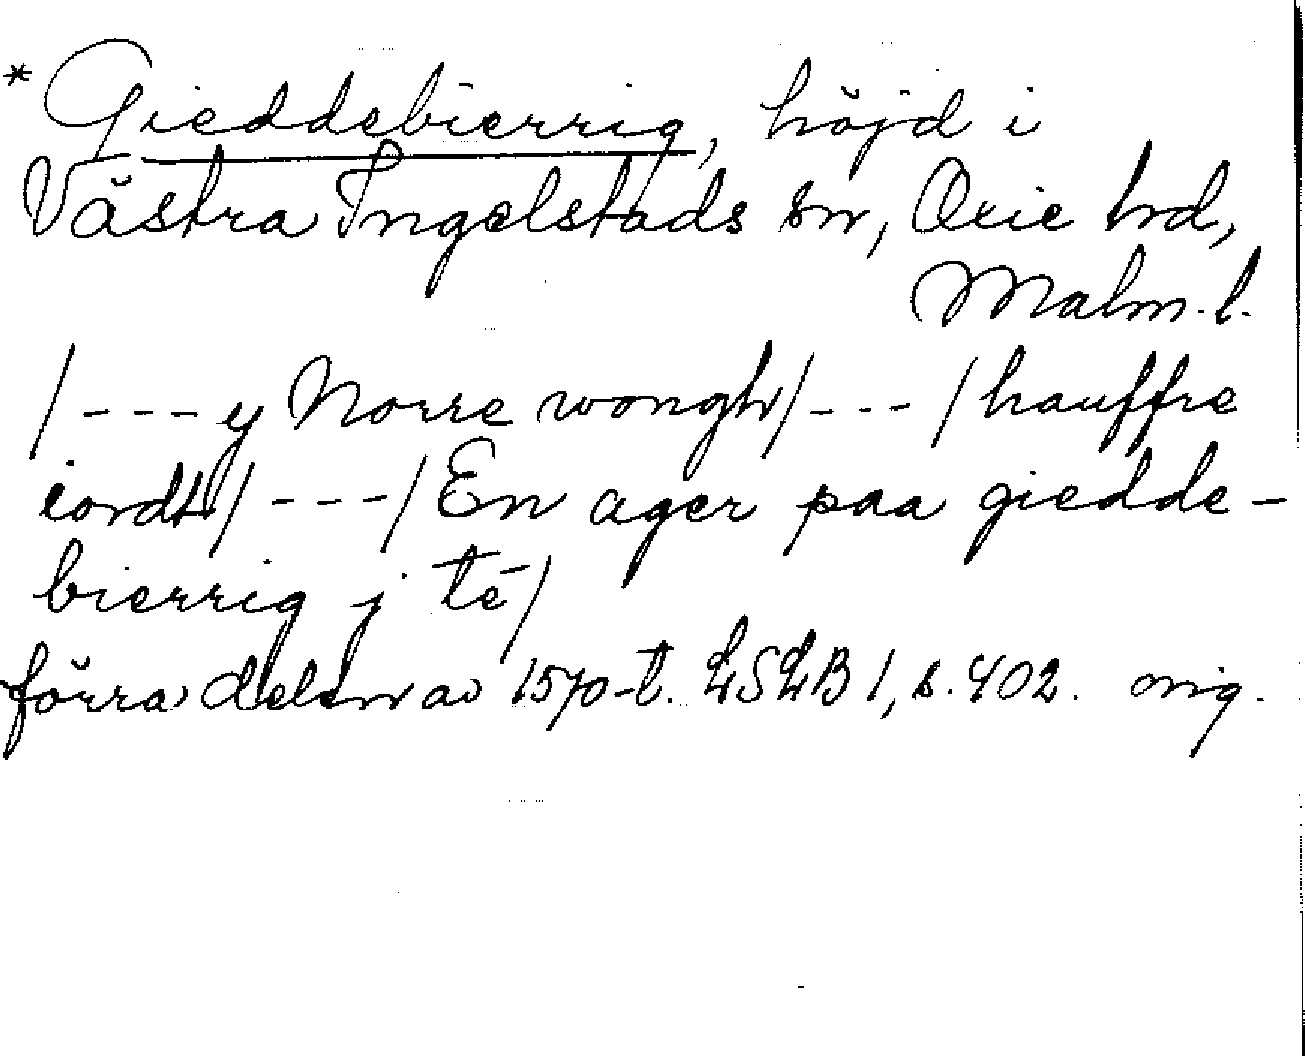 * Gieddebierrig, höjd i
Västra Ingelstads sn, Oxie hd,
Malm. l.
/---y Norre wongh/---/hauffre
iordt/---/En ager paa giedde-
bierrig j té/
förra delen av 1570-t. LSLB 1, s. 402. orig.